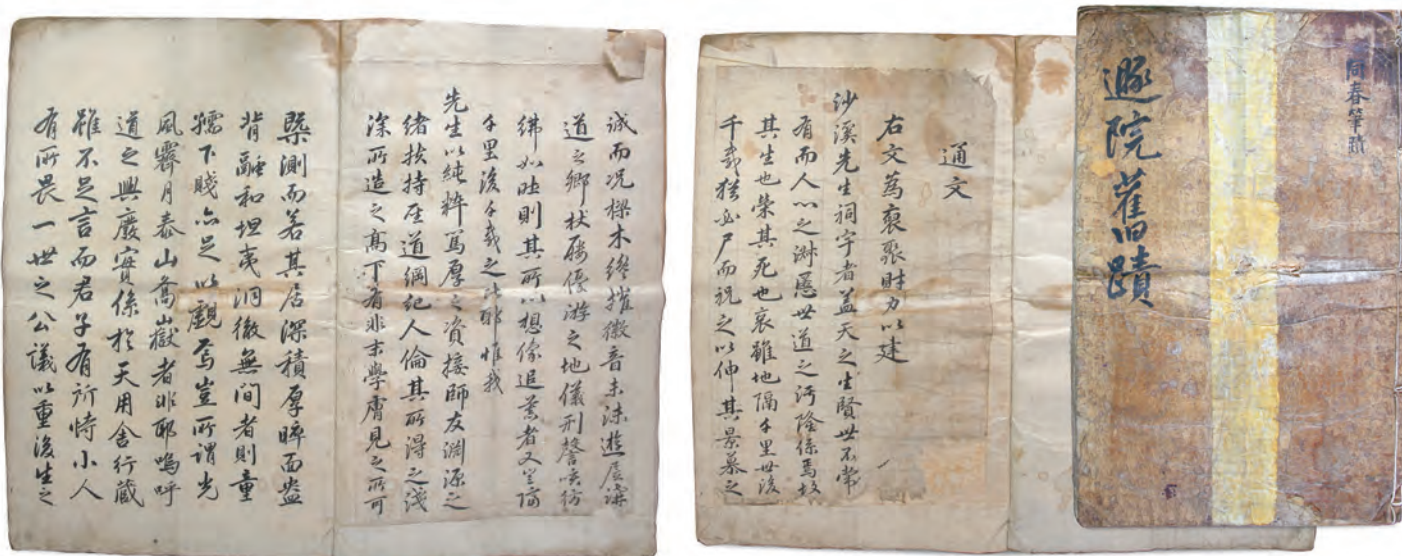 同春筆蹟
遯院舊蹟
通文
右文爲裒聚財力以建
沙溪先生祠宇者盖天之生賢世不常
有而人心之淑慝世道之汚隆係焉故
其生也榮其死也哀雖地隔千里世後
千載猶必尸而祝之以伸其景慕之
誠而况樑木纔摧徽音未沫遊居講
道之鄕杖屨優游之地儀刑謦咳彷
彿如昨則其所以想像追慕者又豈隔
千里後千載之比耶惟我
先生以純粹篤厚之資接師友淵源之
緖扶持道綱紀人倫其所得之淺
深所造之高下有非末學膚見之所可
槩測而若其居深積厚睟面盎
背融和坦夷洞徹無間者則童
孺下賤亦足以觀焉豈所謂光
風霽月泰山喬嶽者非耶嗚呼
道之興廢實係於天用舍行藏
雖不足言而君子有所恃小人
有所畏一世之公議以重後生之